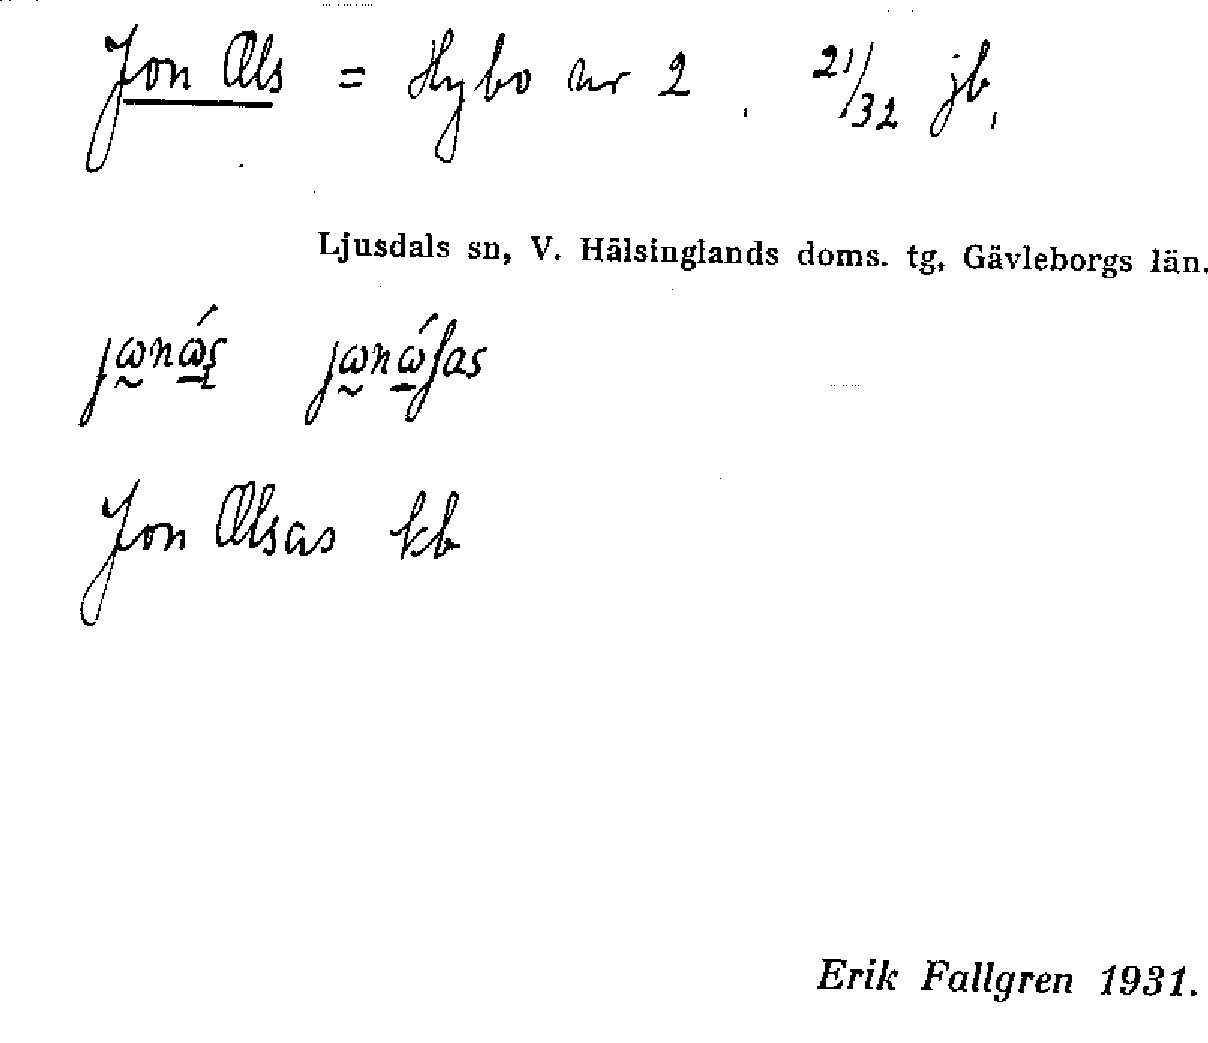 Jon Ols = Hybo nr 2. 21/32 jb,
Ljusdals sn, V. Hälsinglands doms. tg, Gävleborgs län.
Jon Olsas kb
Erik Fallgren 1931.